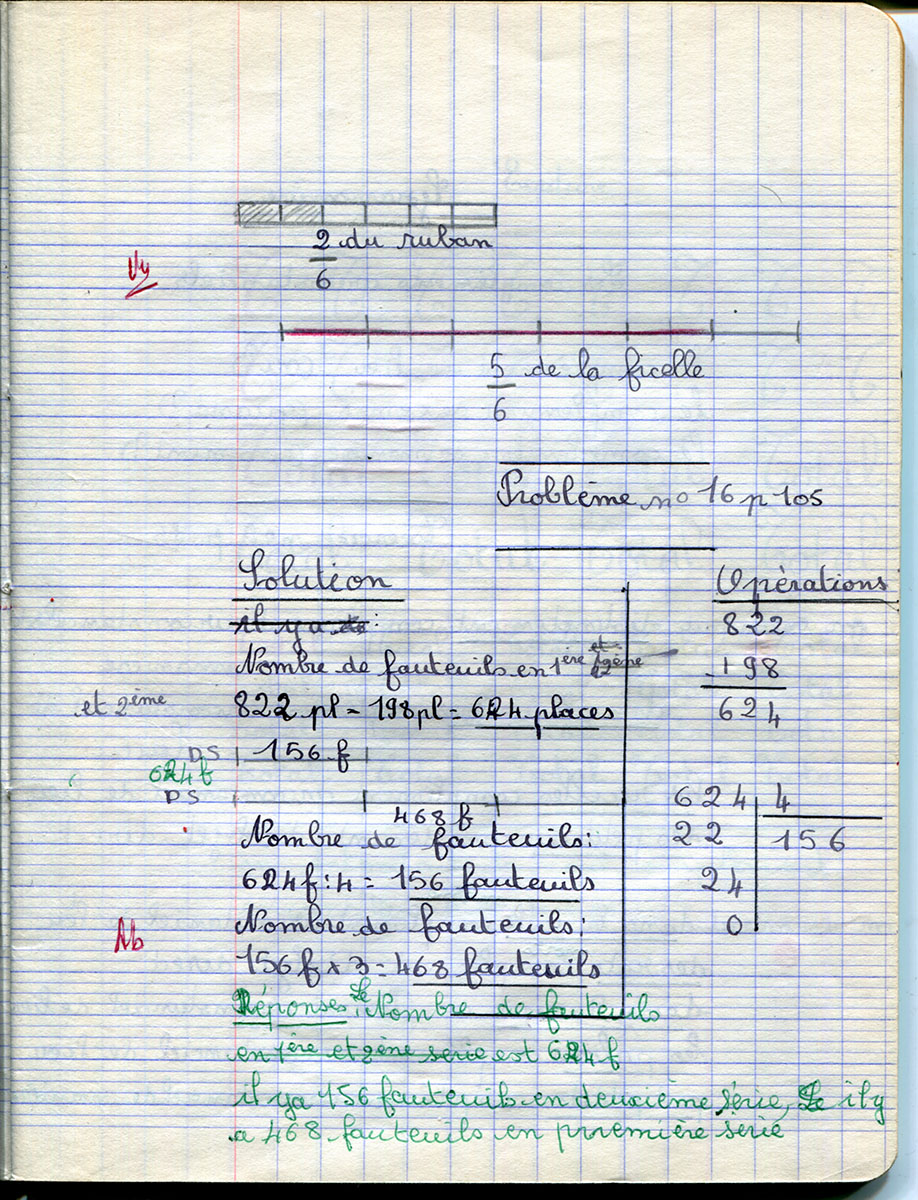 2 du ruban
6
Vy
5 de la ficelle
6
Problème no 16 p 105
Solution
Opérations
il y a
822
Nombre de fauteuils en 1ère et 2ème
- 198
et 2ème
822 pl - 198 pl = 624 places
624
DS
156 f
624 f
DS
468 f
624 4
Nombre de fauteuils:
22 156
624 f : 4 = 156 fauteuils
24
Nombre de fauteuils:
0
Ab
156 f x 3 = 468 fauteuils
Réponses: Le Nombre de fauteuils
en 1ère et 2ème serie est 624 f
il y a 156 fauteuils en deuxième série, il y
a 468 fauteuils en première serie